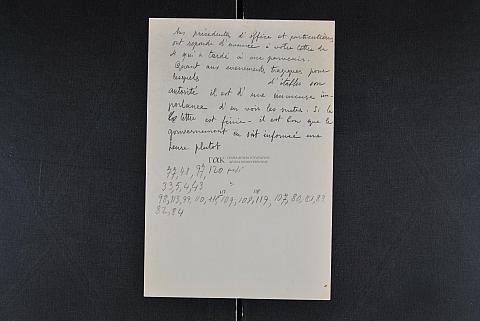 Les précédentes d'office et particulières
ont repondu d'avance à votre lettre du
4 qui a tardé à me parvenir.
Quant aux evenements tragiques pour
lesquels d'établir son
autorité il est d'une immense im-
portance d'en voir les suites. Si la
lettre est finie - il est bon que le
gouvernement en soit informé une
heure plutot
ΓΑΚ
33,5,4,43
82,84